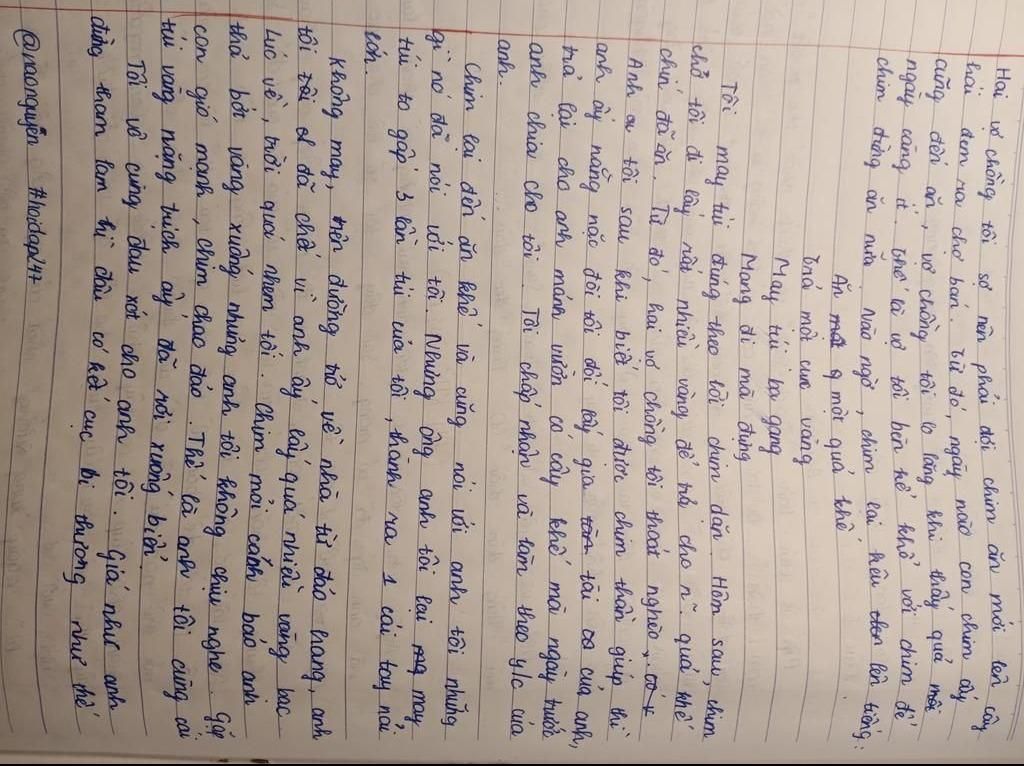 Hai vợ chồng tôi sợ nên phải đợi chim ăn mới lên cây
hái đem ra chợ bán. Từ đó, ngày nào con chim ấy
cũng đến ăn, vợ chồng tôi lo lắng khi thấy quả
ngày càng ít. Thế là vợ tôi bèn kể khổ với chim để
chim đừng ăn nữa. Nào ngờ, chim lại kêu lên tiếng:
Ăn một quả khế
trả một cục vàng
May túi ba gang
Mang đi mà đựng
Tôi may túi đúng theo lời chim dặn. Hôm sau, chim
chở tôi đi lấy rất nhiều vàng để trả cho n~ quả khế
chín đã ăn. Từ đó, hai vợ chồng tôi thoát nghèo,
Anh tôi sau khi biết tôi được chim thần giúp, thì
anh ấy nằng nặc đòi tôi đổi lấy gia tài của anh,
trả lại cho anh mảnh vườn có cây khế mà ngày trước
anh chia cho tôi. Tôi chấp nhận và làm theo y/c của
anh.
Chim lại đến ăn khế và cũng nói với anh tôi những
gì nó đã nói với tôi. Nhưng ông anh tôi lại may
túi to gấp 3 lần túi của tôi, thành ra 1 cái tay nải
lớn.
Không may, trên đường trở về nhà từ đảo hoang, anh
tôi đã chết vì anh ấy lấy quá nhiều vàng bạc
Lúc về, trời quá nhem tối. Chim mỏi cánh bảo anh
thả bớt vàng xuống nhưng anh tôi không chịu nghe. Gặp
cơn gió mạnh, chim chao đảo. Thế là anh tôi cùng cái
túi vàng nặng trịch ấy đã rơi xuống biển.
Tôi vô cùng đau xót cho anh tôi. Giá như anh
đừng tham lam thì đâu có kết cục bi thương như thế
@maonguyễn #hoidap247